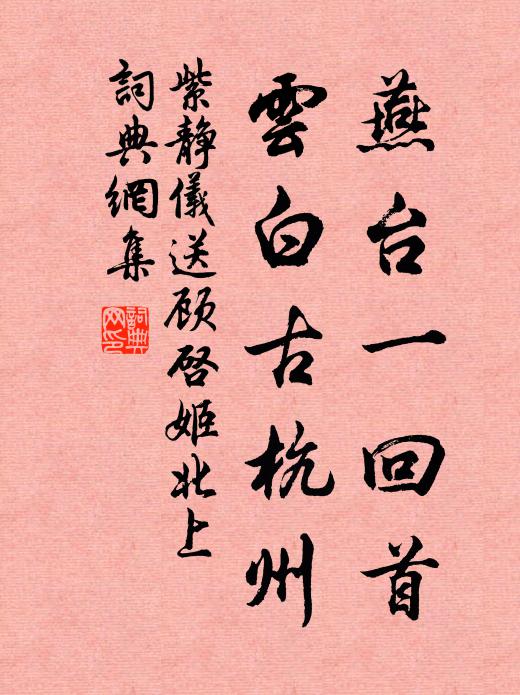 燕台一回首
雲白古杭州
紫静儀送顾啓姬北上
詞典網集
詞典网印